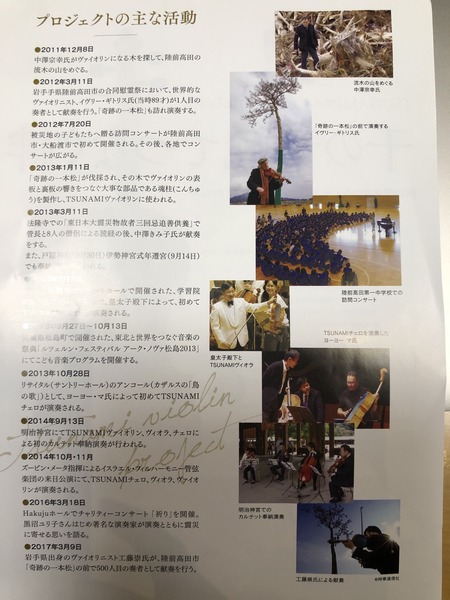 プロジェクトの主な活動
●2011年12月8日
中澤宗幸氏がヴァイオリンになる木を探して、陸前高田の
流木の山をめぐる。
●2012年3月11日
岩手県陸前高田市の合同慰霊祭において、世界的な
ヴァイオリニスト、イヴリー・ギトリス氏(当時89才)が1人目の
奏者として献奏を行う。「奇跡の一本松」も訪れ演奏する。
●2012年7月20日
被災地の子どもたちへ贈る訪問コンサートが陸前高田
市・大船渡市で初めて開催される。その後、各地でコン
サートが広がる。
●2013年1月11日
「奇跡の一本松」が伐採され、その木でヴァイオリンの表
板と裏板の響きをつなぐ大事な部品である魂柱(こんちゅ
う)を製作し、TSUNAMIヴァイオリンに使われる。
●2013年3月11日
法隆寺での「東日本大震災物故者三回忌追善供養」で
管長と8人の僧侶による読経の後、中澤きみ子氏が献奏
をする。
また、戸隠神社 伊勢神宮式年遷宮(9月14日)
でも奉
ホールで開催された、学習院
、皇太子殿下によって、初めて
9月27日～10月13日
宮城県松島町で開催された、東北と世界をつなぐ音楽の
祭典「ルツェルン・フェスティバル アーク・ノヴァ松島2013」
にてこども音楽プログラムを開催する。
●2013年10月28日
リサイタル(サントリーホール)のアンコール(カザルスの「鳥
の歌」)として、ヨーヨー・マ氏によって初めてTSUNAMI
チェロが演奏される。
●2014年9月13日
明治神宮にてTSUNAMIヴァイオリン、ヴィオラ、チェロに
よる初のカルテット奉納演奏が行われる。
●2014年10月・11月
ズービン・メータ指揮によるイスラエル・フィルハーモニー管弦
楽団の来日公演にて、TSUNAMIチェロ、ヴィオラ、ヴァイオ
リンが演奏される。
●2016年3月18日
Hakujuホールでチャリティーコンサート「祈り」を開催。
黒沼ユリ子さんはじめ著名な演奏家が演奏とともに震災
に寄せる思いを語る。
●2017年3月9日
岩手県出身のヴァイオリニスト工藤崇氏が、陸前高田市
「奇跡の一本松」の前で500人目の奏者として献奏を行う。
tsunami violin
project
流木の山をめぐる
中澤宗幸氏
「奇跡の一本松」の前で演奏する
イヴリー・ギトリス氏
陸前高田第一中学校での
訪問コンサート
TSUNAMIチェロを演奏した
ヨーヨー・マ氏
皇太子殿下と
TSUNAMIヴィオラ
明治神宮での
カルテット奉納演奏
工藤崇氏による献奏
©時事通信社